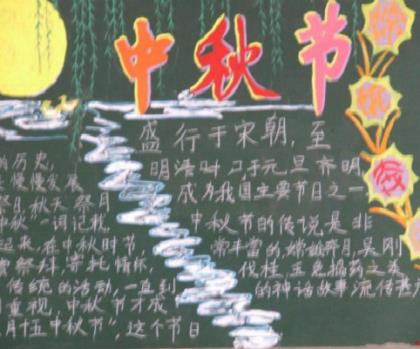 中秋节
的历史，
慢慢发展
祭月秋天祭月
中秋一词记载，
起来，在中秋时节，
寄托情怀，
传统的活动，一直到
重视，中秋节才成
月十五中秋节"，这个节日
盛行于宋朝，至
明清时，于元旦齐明，
成为我国主要节日之一
中秋节的传说是非
常丰富的，嫦娥奔月，吴刚
伐桂，玉兔捣药之类
的神话故事流传甚